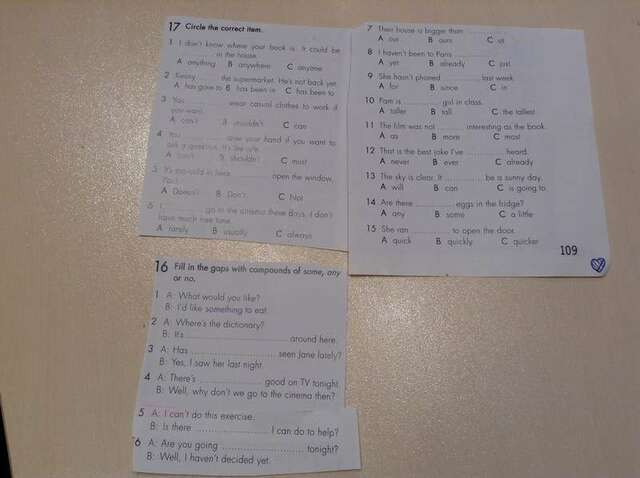 17 Circle the correct item.
1 I don't know where your book is. It could be
............ in the house.
A anything B anywhere C anyone
2 Kenny ............ the supermarket. He's not back yet.
A has gone to B has been in C has been to
3 You ............ wear casual clothes to work if
you want.
A can't B shouldn't C can
4 You ............ your hand if you want to
ask a question. It's the rule.
A can't B shouldn't C must
5 It's too cold in here. ............ open the window.
A Doesn't B Don't C Not
6 I ............ go to the cinema these days. I don't
have much free time.
A rarely B usually C always
7 Their house is bigger than ............
A our B ours C us
8 I haven't been to Paris ............
A yet B already C just
9 She hasn't phoned ............ last week.
A for B since C in
10 Pam is ............ girl in class.
A taller B tall C the tallest
11 The film was not ............ interesting as the book.
A as B more C most
12 That is the best joke I've ............ heard.
A never B ever C already
13 The sky is clear. It ............ be a sunny day.
A will B can C is going to
14 Are there ............ eggs in the fridge?
A any B some C a little
15 She ran ............ to open the door.
A quick B quickly C quicker
109
16 Fill in the gaps with compounds of some, any
or no.
1 A: What would you like?
B: I'd like something to eat.
2 A: Where's the dictionary?
B: It's ............ around here.
3 A: Has ............ seen Jane lately?
B: Yes, I saw her last night.
4 A: There's ............ good on TV tonight.
B: Well, why don't we go to the cinema then?
5 A: I can't do this exercise.
B: Is there ............ I can do to help?
6 A: Are you going ............ tonight?
B: Well, I haven't decided yet.